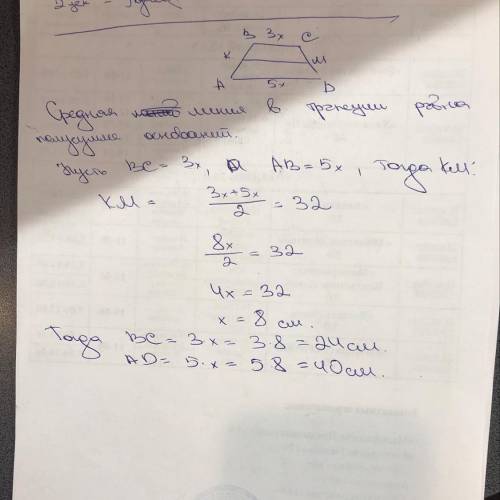 2
B 3x C
K M
A 5x D
Средная линия в трапеции равна
полусумме оснований.
Пусть BC = 3x, а AB = 5x, тогда KM:
KM = 3x+5x / 2 = 32
8x / 2 = 32
4x = 32
x = 8 см.
Тогда BC = 3x = 3·8 = 24 см.
AD = 5·x = 5 8 = 40 см.